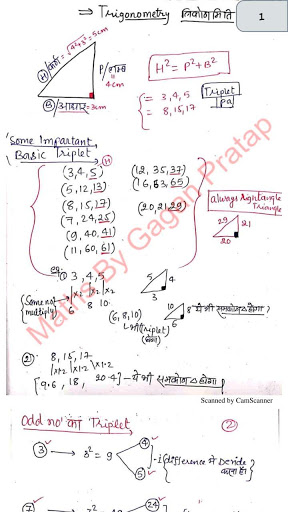 ⇒ Trigonometry त्रिकोणमिति
1
(H) कर्ण = √4²+3² = 5cm
P/लम्ब
= 4cm
(B)/आधार = 3cm
H² = P² + B²
= 3,4,5 Triplet
= 8,15,17
Some Important
Basic Triplet
(H)
(3,4,5) (12,35,37)
(5,12,13) (16,63,65)
(8,15,17) (20,21,29)
(7,24,25)
(9,40,41)
(11,60,61)
always Rightangle
Triangle
29 21
20
eg:
① 3,4,5
Same no से
multiply
|x2 |x2 |x2
6 8 10
5 4
3
(6,8,10)
भी triplet
होगा
10 8
6
ये भी समकोण △ होगा?
② 8, 15, 17
|x1.2 |x1.2 |x1.2
[9.6, 18, 20.4] - ये भी समकोण △ होगा
Maths By Gagan Pratap
Scanned by CamScanner
Odd no का Triplet
②
③ → 3² = 9
④
⑤
-1 (difference से Devide
करना है)
⑦
24